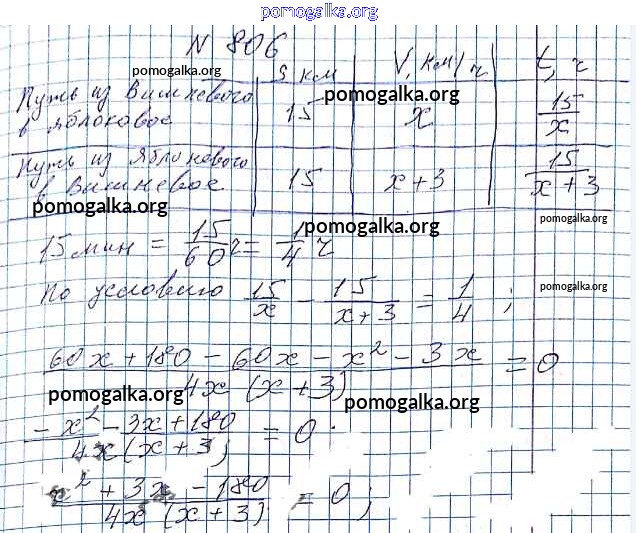 pomogalka.org
N 806
S км V, км/ч t, ч
pomogalka.org
pomogalka.org
Путь из Вишневого в яблоковое 15 x 15/x
Путь из Яблоневого в Вишневое 15 x+3 15/(x+3)
pomogalka.org
pomogalka.org
pomogalka.org
15 мин = 15/60 ч = 1/4 ч
pomogalka.org
По условию 15/x - 15/(x+3) = 1/4 ;
pomogalka.org
(60x + 180 - 60x - x² - 3x)/(4x(x+3)) = 0
pomogalka.org
pomogalka.org
(-x² - 3x + 180)/(4x(x+3)) = 0 ;
pomogalka.org
(x² + 3x - 180)/(4x(x+3)) = 0 ;